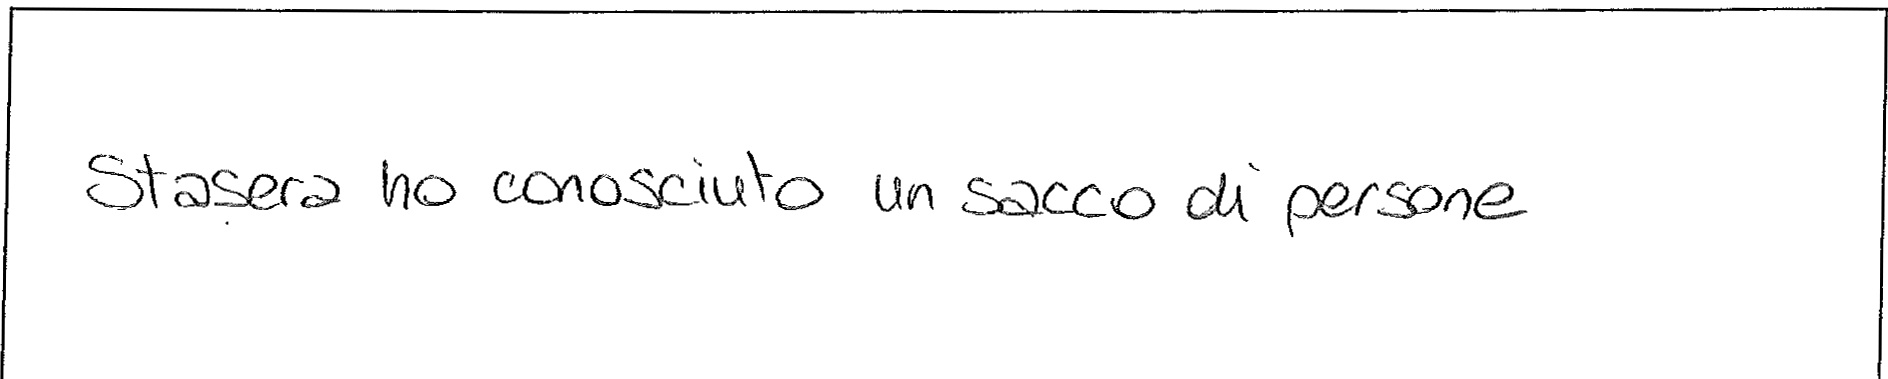 Stasera ho conosciuto un sacco di persone